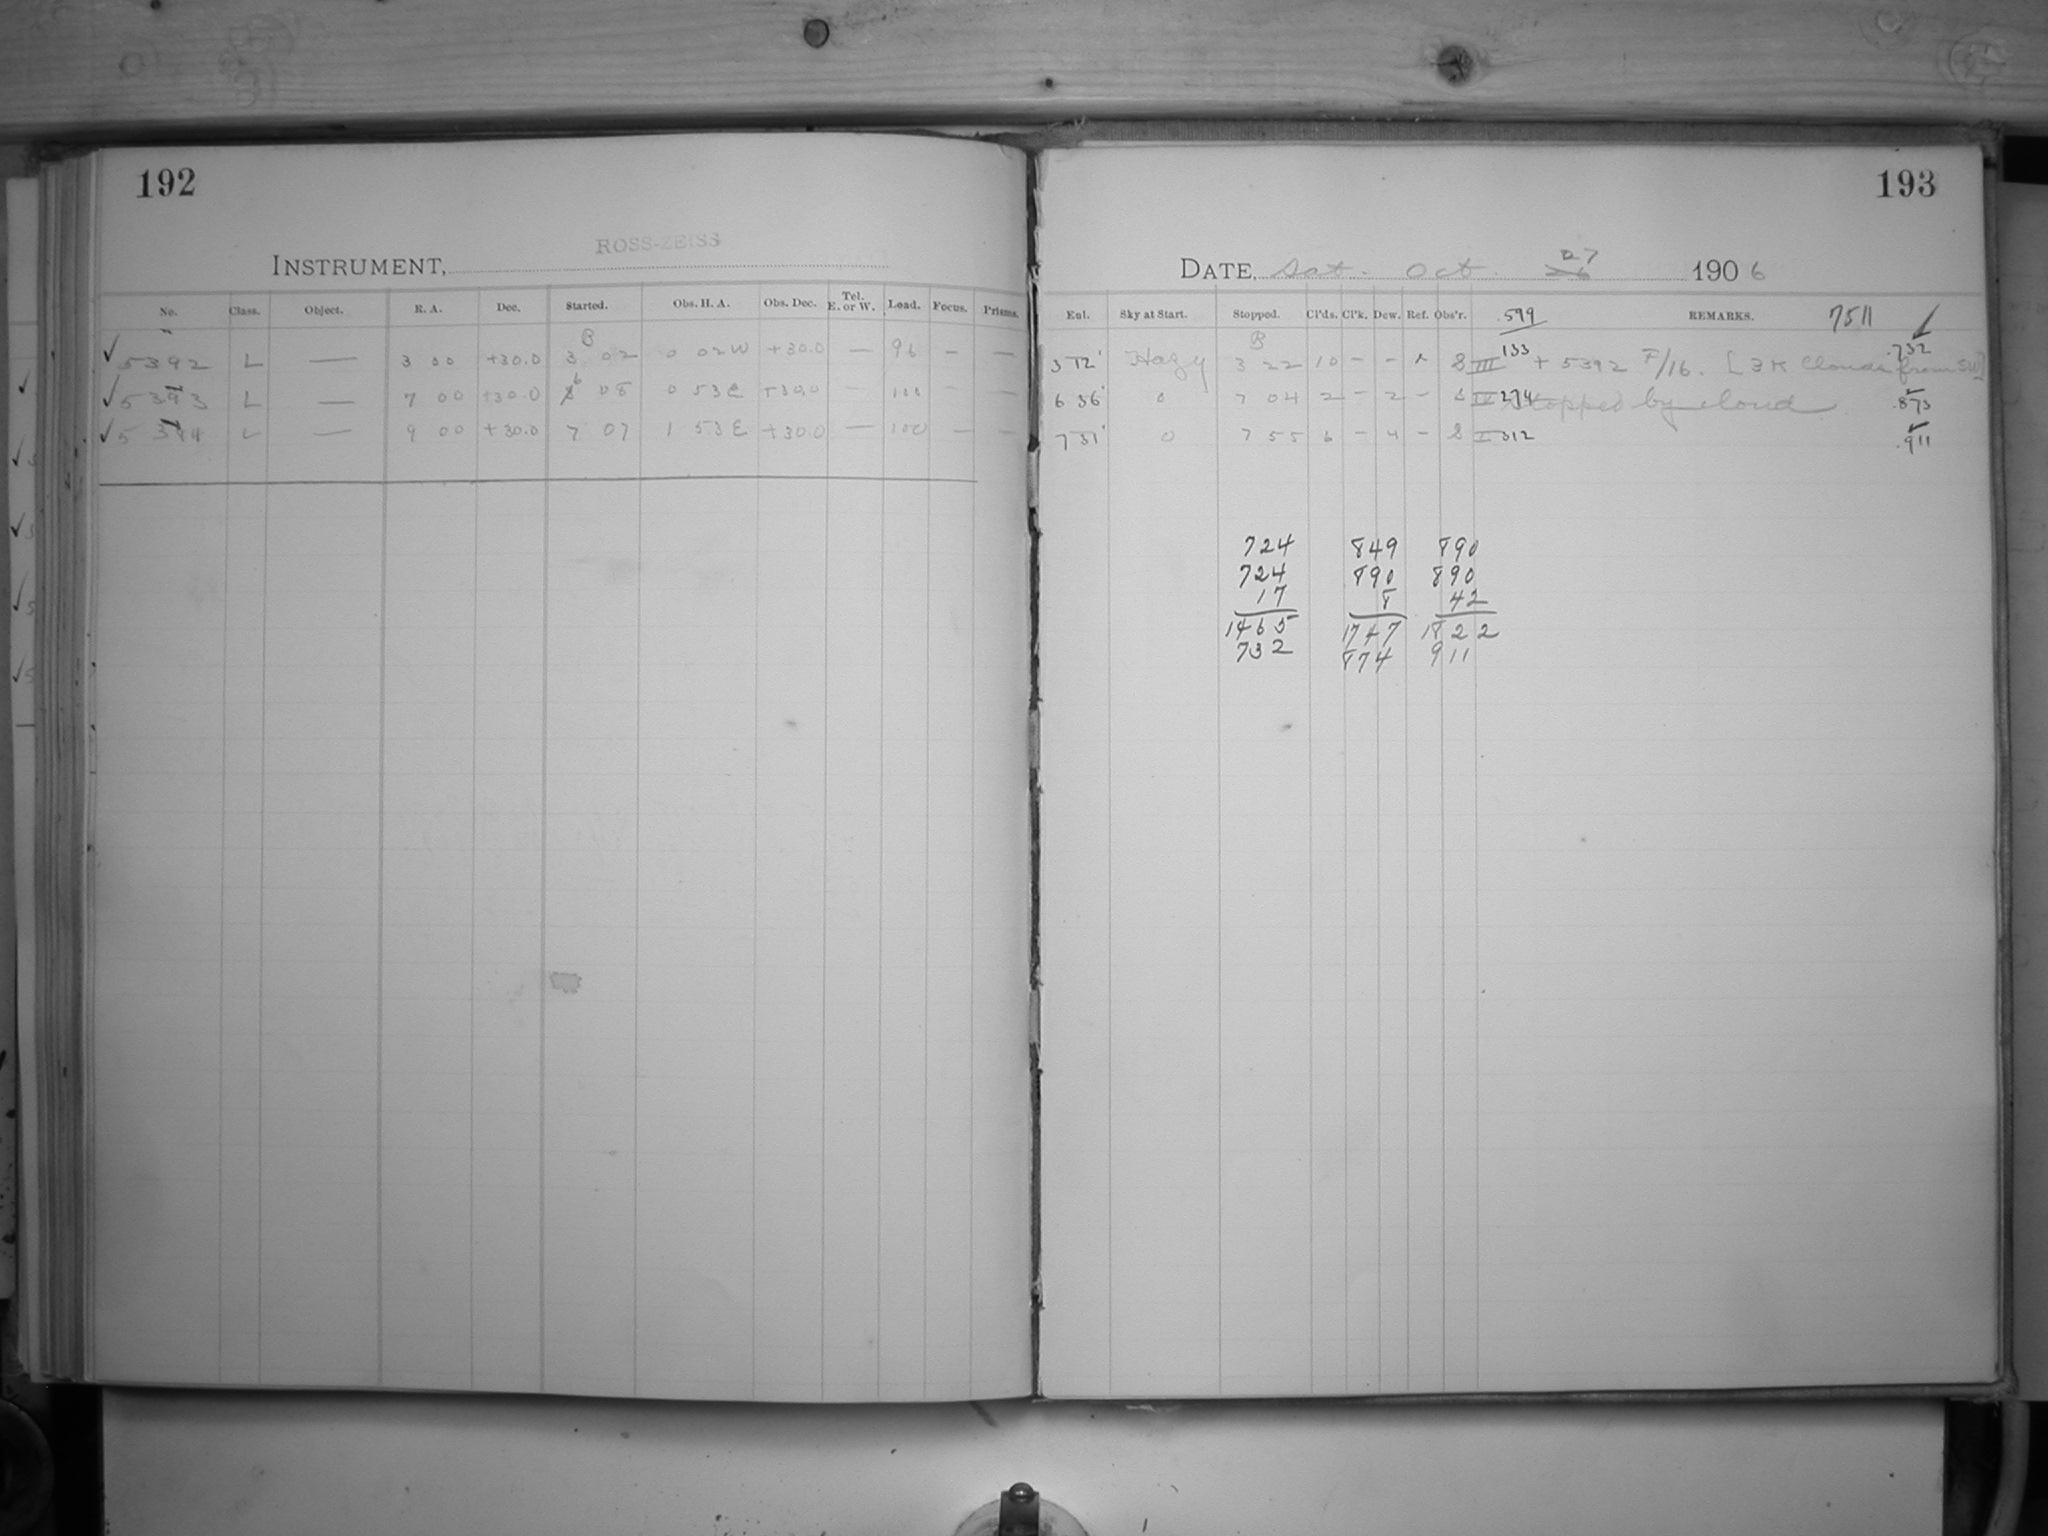 192
ROSS-ZEISS
INSTRUMENT,
No. Class. Object. R. A. Dec. Started. Obs. H. A. Obs. Dec. Tel. E. or W. Load. Focus. Prisms.
B
✓ 5392 L — 3 00 +30.0 3 02 0 02 W +30.0 — 96 — —
✓ 5393 L — 7 00 +30.0 6 08 0 53 E +30.0 — 100 — —
✓ 5394 L — 9 00 +30.0 7 07 1 53 E +30.0 — 100 — —
193
DATE, Sat. Oct. 27 1906
26
Eul. Sky at Start. Stopped. Cl'ds. Cl'k. Dew. Ref. Obs'r. .599 REMARKS. 7511 ✓
B
3 12 Hazy 3 22 10 – – S III 133 + 5392 F/16. [3 K Clouds from SW] .732
6 36 0 7 04 2 – 2 – S IV 274 Stopped by cloud .873
7 31 0 7 55 6 – 4 – S I 312 .911
724 849 890
724 890 890
17 8 42
1465 1747 1822
732 874 911